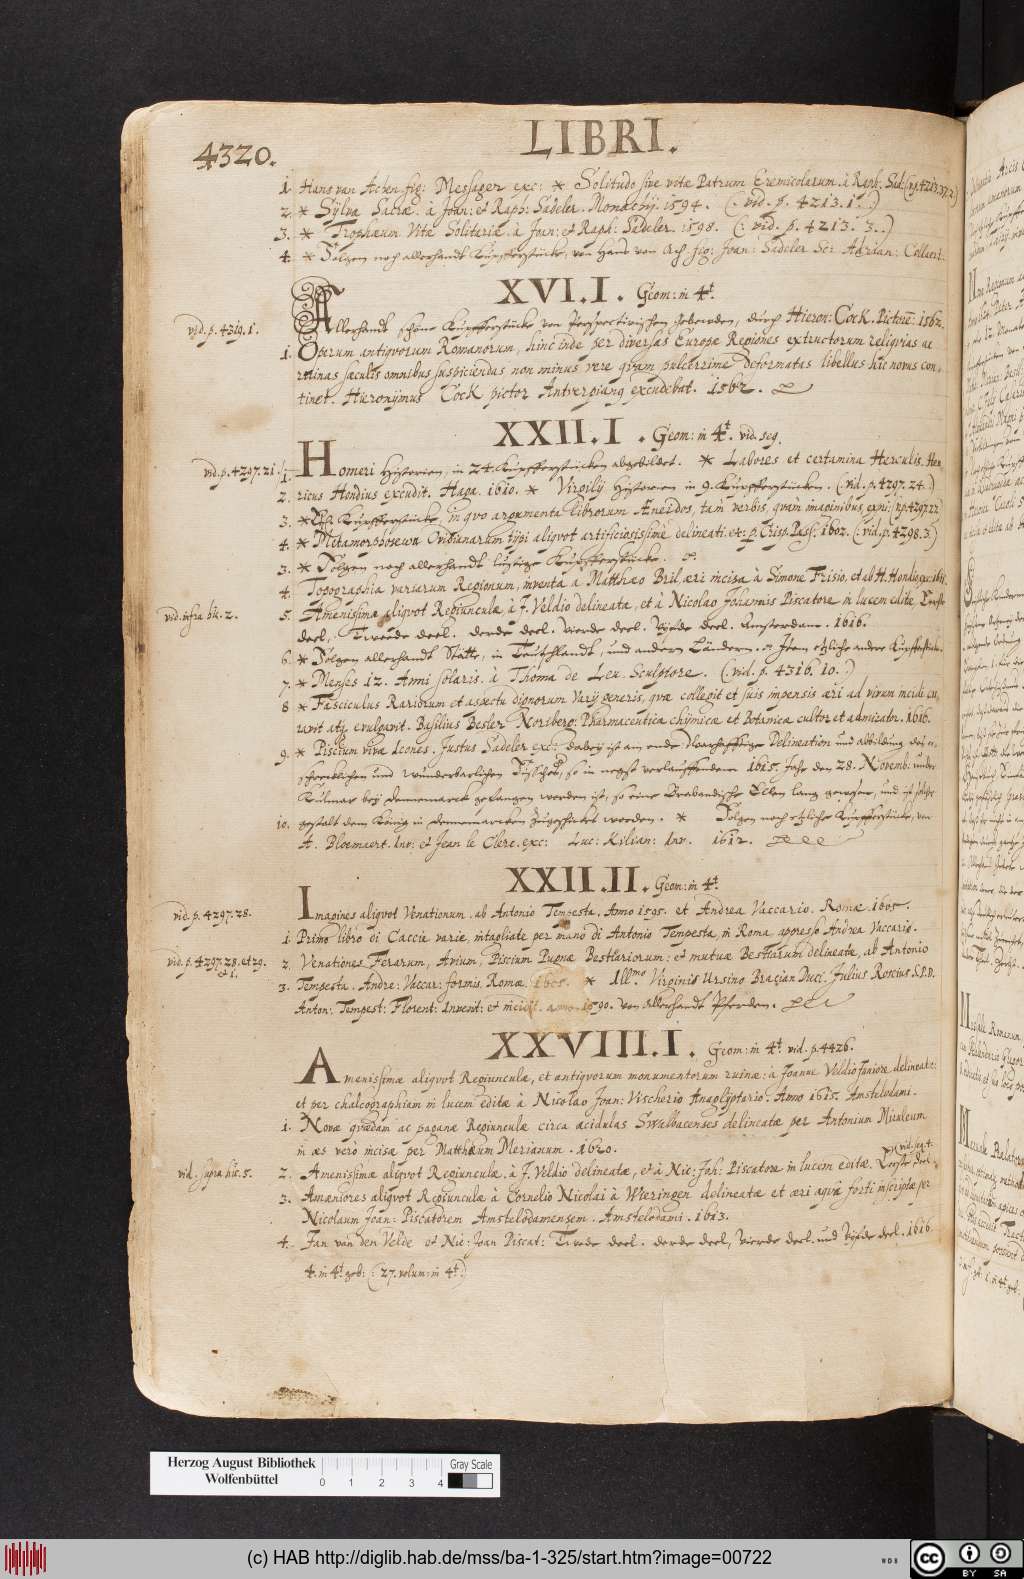 LIBRI.
4320.
1. Hans van Achen fig: Messager exc: * Solitudo sive vitæ Patrum Eremicolarum. à Raph: Sad:
2. * Sylvæ Sacræ. à Joan: et Raph: Sadeler. Monachij. 1594. (: vid. p. 4213. 1. :)
3. * Trophæum Vitæ Solitariæ. à Joan: et Raph: Sadeler. 1598. (: vid. p. 4213. 3. :)
4. * Folgen noch allerhandt Kupfferstücke, von Hans von Ach fig: Joan: Sadeler Sc: Adrian: Collaert.
XVI. I. Geom: in 4t.
vid. p. 4319. 1.
Allerhandt schöne Kupfferstücke von Perspectivischen Gebewden, durch Hieron: Cock. Pictorē: 1562.
1. Operum antiquorum Romanorum, hinc inde per diversas Europæ Regiones extructorum reliquias ac
ruinas sæculis omnibus suspiciendas non minus vere quam pulcerrime deformatas libellus hic novus con-
tinet. Hieronymus Cock pictor Antverpianq excudebat. 1562.
XXII. I. Geom: in 4t. vid. seq.
vid. p. 4297. 21.
1. Homeri Historien, in 24. Kupfferstücken abgebildet. * Labores et certamina Herculis. Hen-
2. ricus Hondius excudit. Haga. 1610. * Virgilij Historien in 9. Kupfferstücken. (: vid. p. 4297. 24. :)
3. * Kupfferstücke, in quo argumenta librorum Æneidos, tam verbis, quam imaginibus
4. * Metamorphosewn Ovidianarum typi aliquot artificiosissimè delineati. etc. p. Crisp. Pass: 1602. (: vid. p. 4298. 3. :)
3. * Folgen noch allerhandt lustige Kupfferstücke.
4. Topographia variarum Regionum, inventa a Matthæo Bril, æri incisa à Simone Frisio, et ab H. Hondio
vid. infra hic. 2.
5. Amenissimæ aliquot Regiunculæ à J. Veldio delineata, et à Nicolao Johannis Piscatore in lucem editæ. Eerste
deel, Tweede deel. derde deel. Vierde deel. Vijfde deel. Amsterdam. 1616.
6. * Folgen allerhandt Stätte, in Teutschlandt, und andern Ländern. Item etzliche andere Kupfferstücke.
7. * Menses 12. Anni solaris. à Thoma de Leu. Sculptore. (: vid. p. 4316. 10. :)
8. * Fasciculus Rariorum et aspectu dignorum Varij generis, quæ collegit et suis impensis æri ad vivum incidi cu-
ravit atq evulgavit. Basilius Besler Norsberg: Pharmaceuticæ chimicæ et Botanicæ cultor et admirator. 1616.
9. * Piscium vivæ Icones. Justus Sadeler exc: dabey ist am ende: Warhafftige Delineation und abbildung des
schrecklichen und wunderbarlichen Fisches, so in negst verlauffendem 1615. Jahr den 28. Novemb: unter
Kulmar bey dennemarck gefangen worden ist, so eine Brabandische Ellen lang gewesen, und ist solche
10. gestalt dem König in dennemarcken zugeschicket worden. * Folgen noch etzliche Kupfferstücke, von
A. Bloemaert. Inv: et Jean le Clerc. exc: Luc: Kilian: Inv. 1612.
XXII. II. Geom: in 4t.
vid. p. 4297. 28.
Imagines aliquot Venationum. ab Antonio Tempesta. Anno 1595. et Andrea Vaccario. Romæ. 1605.
1. Primo libro di Caccie varie, intagliate per mano di Antonio Tempesta, in Roma, appresso Andrea Vaccario.
vid. p. 4297. 28. et 29.
2. Venationes Ferarum, Avium, Piscium Pugnæ Bestiariorum: et mutuæ Bestiarum delineatæ, ab Antonio
3. Tempesta. Andre: Vaccar: formis, Romæ. 1605. * Illmo Virginio Ursino Bracian Duci. Julius Roscius. S.P.D.
Anton: Tempest: Florent: Invenit: et incidit. anno. 1590. von Allerhandt Pferden.
XXVIII. I. Geom: in 4t. vid. p. 4426.
Amenissimæ aliquot Regiunculæ, et antiquorum monumentorum ruinæ: à Joanne Veldio Juniore delineatæ:
et per chalcographiam in lucem editæ à Nicolao Joan: Vischerio Anaglyptario. Anno 1615. Amstelodami.
1. Novæ quædam ac paganæ Regiunculæ circa acidulas Swalbacenses delineatæ per Antonium Miruleum
in æs verò incisæ per Matthæum Merianum. 1620.
vid. supra hic. 5.
2. Amenissimæ aliquot Regiunculæ. à J. Veldio delineatæ, et à Nic: Joh: Piscatore in lucem editæ. Eerste deel.
3. Amæniores aliquot Regiunculæ à Cornelio Nicolai à Wieringen delineatæ et æri aquâ forti inscriptæ per
Nicolaum Joan: Piscatorem Amstelodamensem. Amstelodami. 1613.
4. Jan van den Velde et Nic: Joan Piscat: Twede deel. derde deel, Vierde deel. und Vijfde deel. 1616.
4. in 4t. geb: (: 27. volum: in 4t. :)
Herzog August Bibliothek
Wolfenbüttel
0 1 2 3 4
Gray Scale
(c) HAB http://diglib.hab.de/mss/ba-1-325/start.htm?image=00722
WDB
cc BY SA